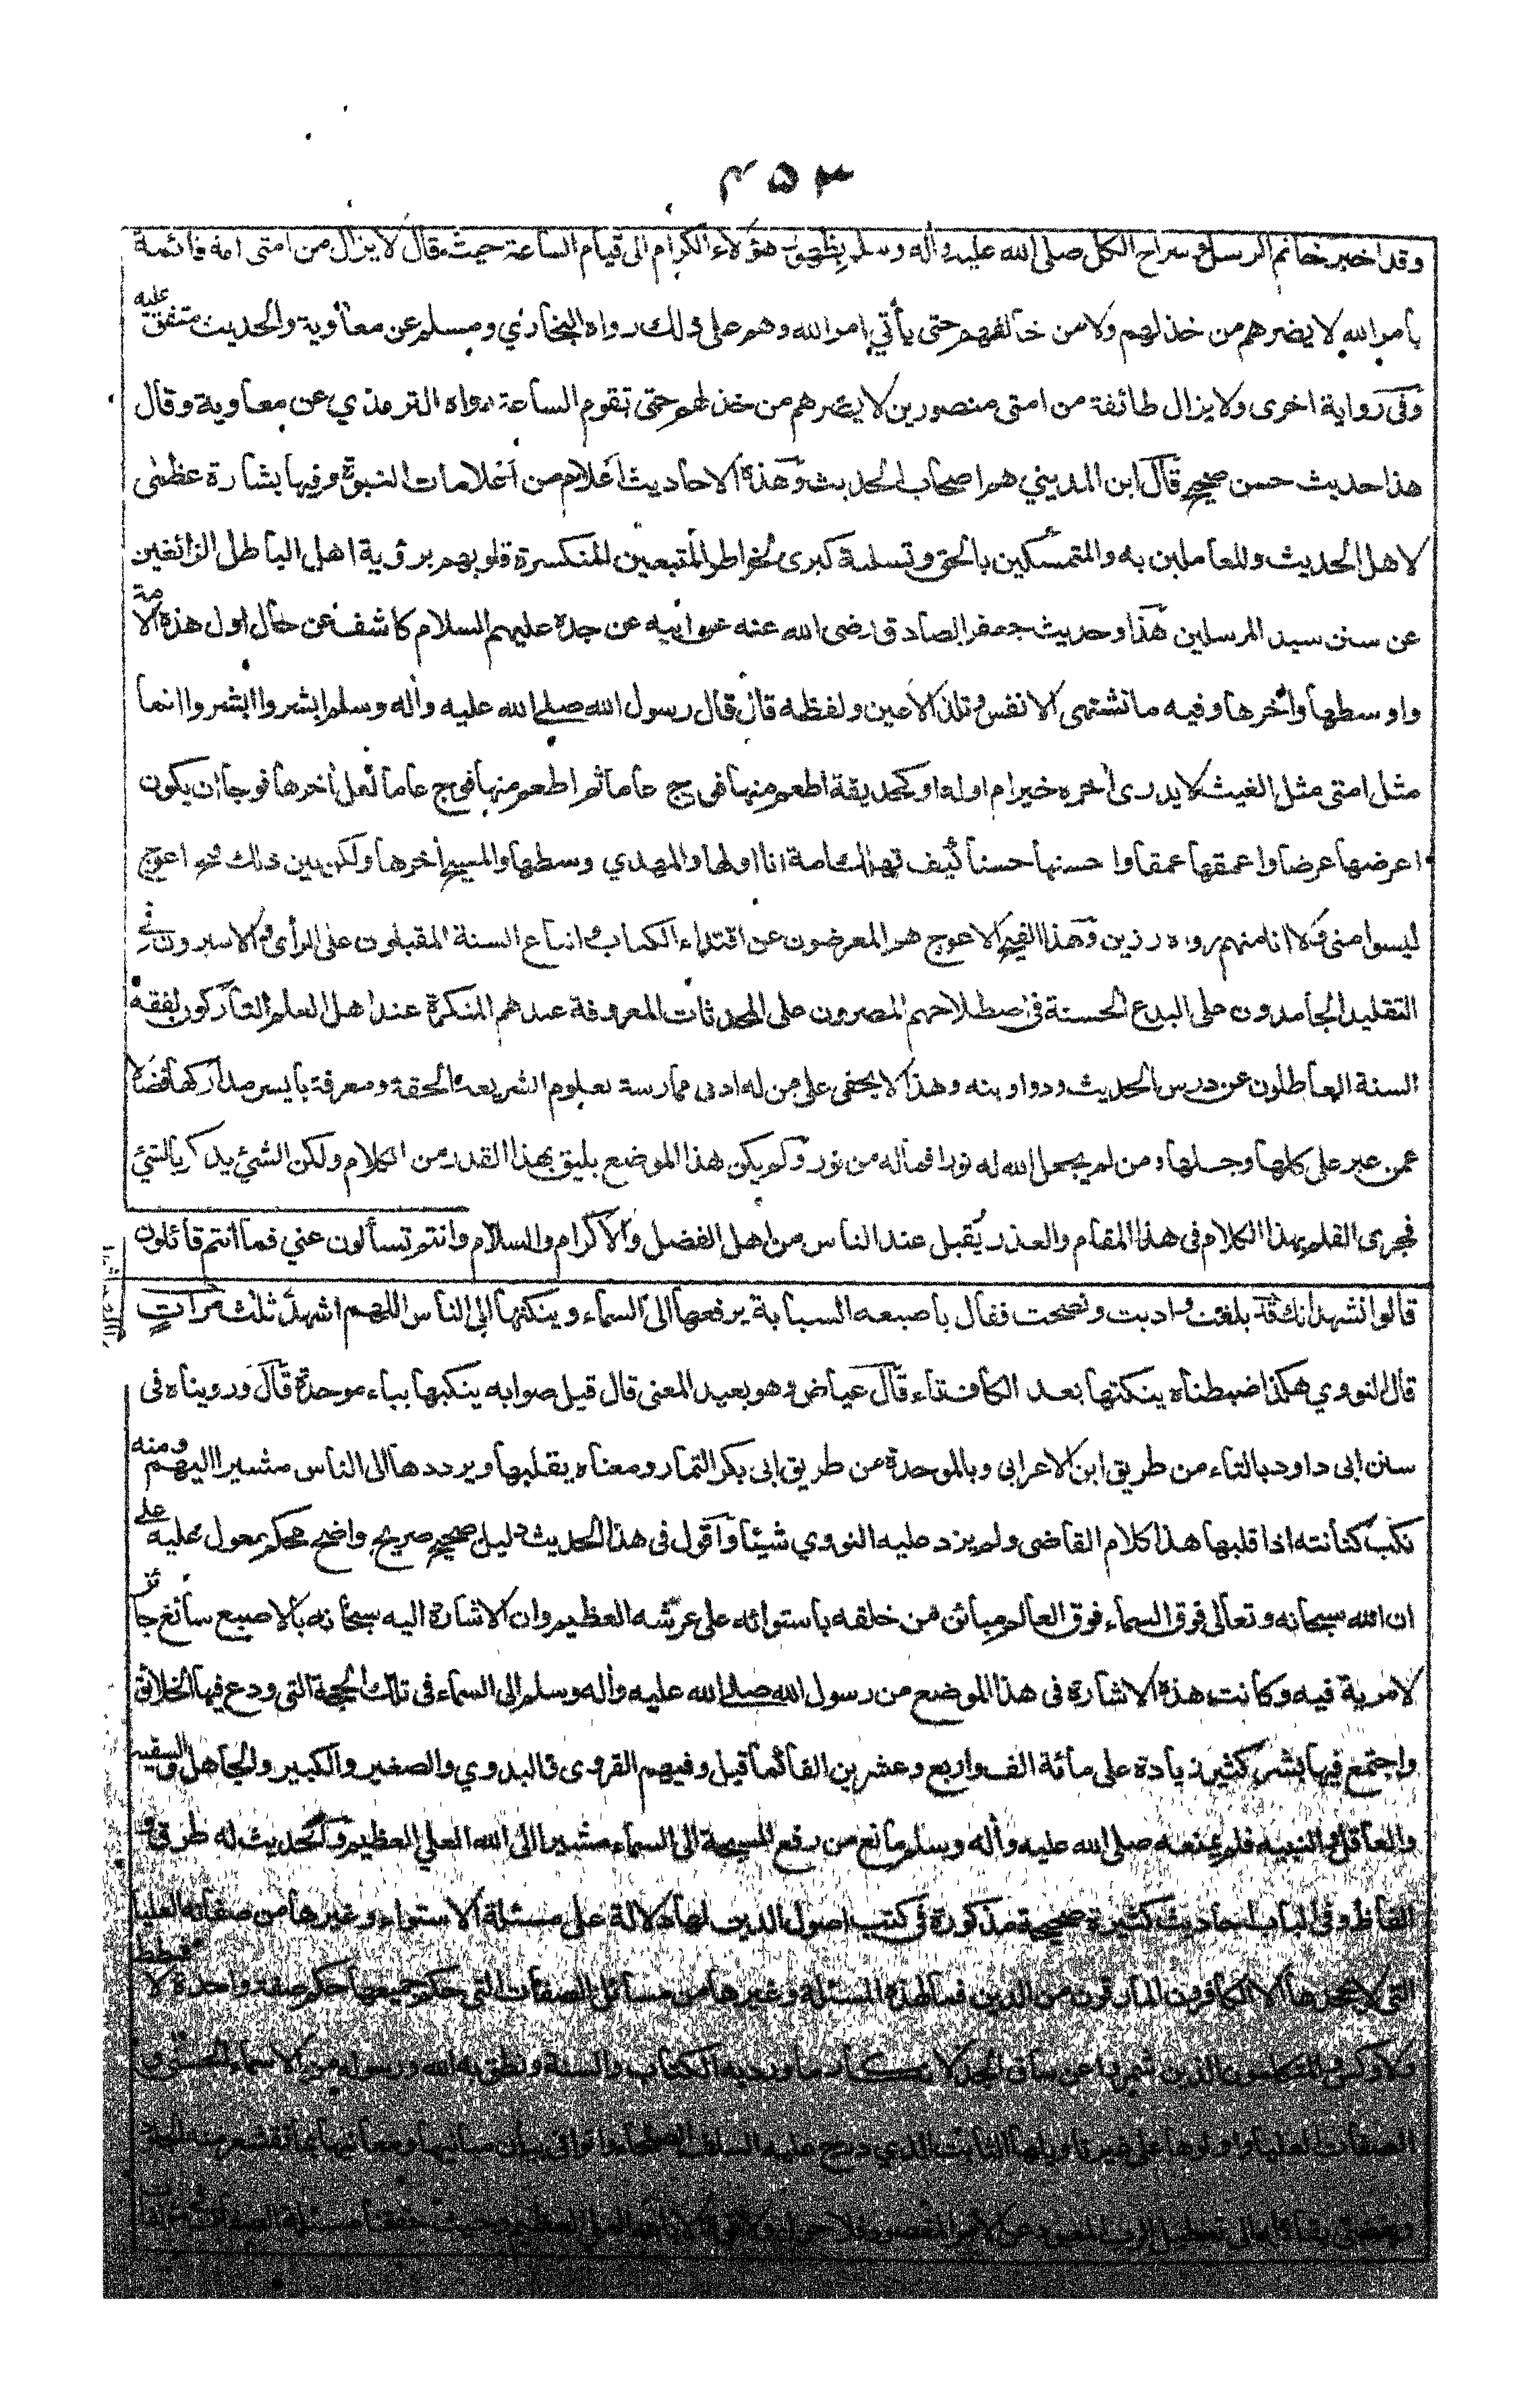 ٤٥٣
وقد اخبر خاتم الرسل وسراج الكل صلى الله عليه وأله وسلم بظهور هؤلاء الكرام الى قيام الساعة حيث قال لا يزال من امتى امة قائمة
بأمر الله لا يضرهم من خذلهم ولا من خالفهم حتى يأتي امر الله وهم على ذلك رواه البخاري ومسلم عن معاوية والحديث متفق عليه
وفى رواية اخرى ولا يزال طائفة من امتى منصورين لا يضرهم من خذلهم حتى تقوم الساعة رواه الترمذي عن معاوية وقال
هذا حديث حسن صحيح قال ابن المديني هم اصحاب الحديث وهذه الاحاديث اعلام من اعلامات النبوة وفيها بشارة عظمى
لاهل الحديث وللعاملين به والمتمسكين بالحق وتسلية كبرى لخواطر المتبعين المنكسرة قلوبهم برؤية اهل الباطل الزائغين
عن سنن سيد المرسلين هذا وحديث جعفر الصادق رضى الله عنه عن ابيه عن جده عليهم السلام كاشف عن حال اول هذه الامة
واوسطها وأخرها وفيه ما تشتهى الانفس وتلذ الاعين ولفظه قال قال رسول الله صلى الله عليه وأله وسلم ابشروا ابشروا انما
مثل امتى مثل الغيث لا يدرى أخره خير ام اوله او كحديقة اطعم منها فوج عاما ثم اطعم منها فوج عاما لعل أخرها فوجا ان يكون
اعرضها عرضا واعمقها عمقا واحسنها حسنا كيف تهلك امة انا اولها والمهدي وسطها والمسيح أخرها ولكن بين ذلك فيج اعوج
ليسوا منى ولا انا منهم رواه رزين وهذا الفيج الاعوج هم المعرضون عن اقتداء الكتاب واتباع السنة المقبلون على الرأى والاسيرون في
التقليد الجامدون على البدع الحسنة فى اصطلاحهم المصرون على المحدثات المعروفة عندهم المنكرة عند اهل العلم التاركون لفقه
السنة العاطلون عن درس الحديث ودواوينه وهذا لا يخفى على من له ادنى ممارسة بعلوم الشريعة الحقة ومعرفة بأيسر مداركها فضلا
عمن عبر على كلها وجلها ومن لم يجعل الله له نورا فماله من نور ولم يكن هذا الموضع يليق بهذا القدر من الكلام ولكن الشيء يذكر بالشيء
فجرى القلم بهذا الكلام فى هذا المقام والعذر يقبل عند الناس من اهل الفضل والاكرام والسلام وانتم تسألون عني فما انتم قائلون
قالوا نشهد انك قد بلغت واديت ونصحت فقال باصبعه السبابة يرفعها الى السماء وينكتها الى الناس اللهم اشهد ثلث مرات
قال النووي هكذا ضبطناه ينكتها بعد الكاف تاء قال عياض وهو بعيد المعنى قال قيل صوابه ينكبها بباء موحدة قال ورويناه فى
سنن ابى داود بالتاء من طريق ابن الاعرابي وبالموحدة من طريق ابى بكر التمار ومعناه يقلبها ويرددها الى الناس مشيرا اليهم ومنه
نكب كنانته اذا قلبها هذا كلام القاضى ولم يزد عليه النووي شيئا واقول فى هذا الحديث دليل صحيح صريح واضح محكم معول عليه على
ان الله سبحانه وتعالى فوق السماء فوق العالم مبائن من خلقه باستوائه على عرشه العظيم وان الاشارة اليه سبحانه بالاصبع سائغ جائز
لا مرية فيه وكانت هذه الاشارة فى هذا الموضع من رسول الله صلى الله عليه وأله وسلم الى السماء فى تلك الحجة التى ودع فيها الخلائق
واجتمع فيها بشر كثير زيادة على مائة الف واربع وعشرين الفا كما قيل وفيهم القروى والبدوي والصغير والكبير والجاهل والسفيه
والعاقل والنبيه فلم يمنعه صلى الله عليه وأله وسلم مانع من رفع المسبحة الى السماء مشيرا الى الله العلي العظيم والحديث له طرق و
الفاظ وفى الباب احاديث كثيرة صحيحة مذكورة فى كتب اصول الدين لها دلالة على مسئلة الاستواء وغيرها من صفاته العليا
التى لا يجحدها الا الكافرون المارقون من الدين فما لهذه المسئلة وغيرها من مسائل الصفات التى حكم جميعها حكم صفة واحدة لا
المتكلمون الذين شمروا عن ساق الجد لانكار ما ورد به الكتاب والسنة ونطق به الله ورسوله من الاسماء الحسنى و
الصفات العليا واولوها على غير تأويلها الثابت الذي درج عليه السلف الصلحاء